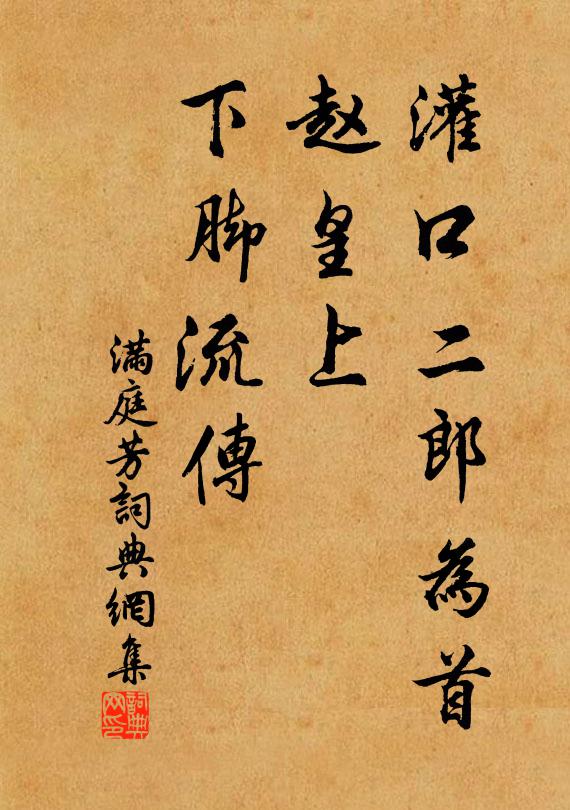 灌口二郎為首
赵皇上
下脚流傳
滿庭芳詞典網集
詞典
网印